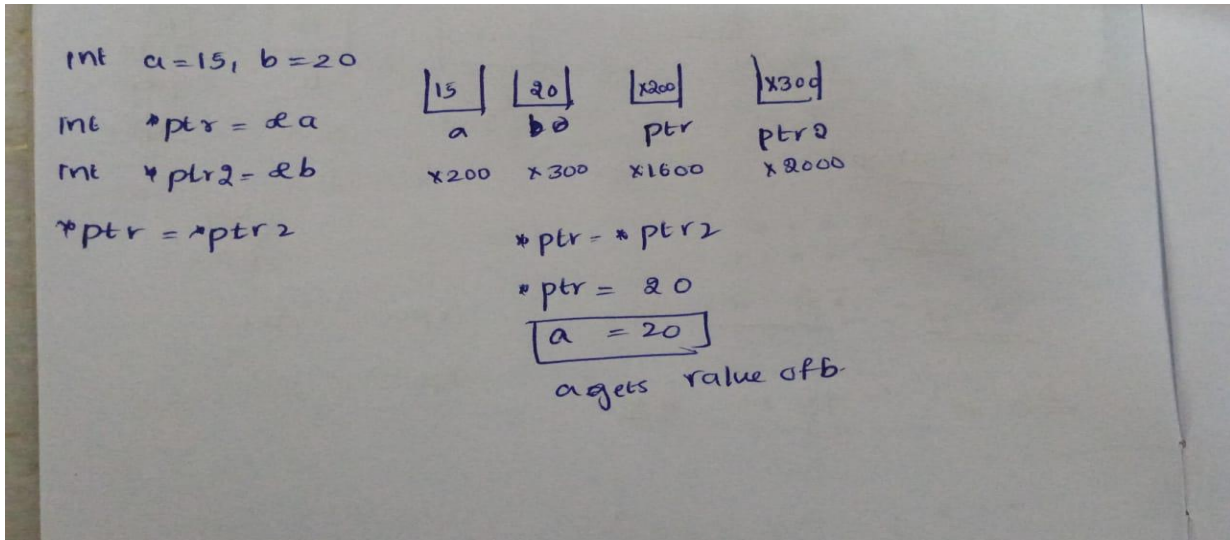 int a=15, b=20
int *ptr = &a
int *ptr2 = &b
*ptr = *ptr2
15 20 x200 x300
a b ptr ptr2
x200 x300 x1600 x2000
*ptr = *ptr2
*ptr = 20
a = 20
a gets value of b.